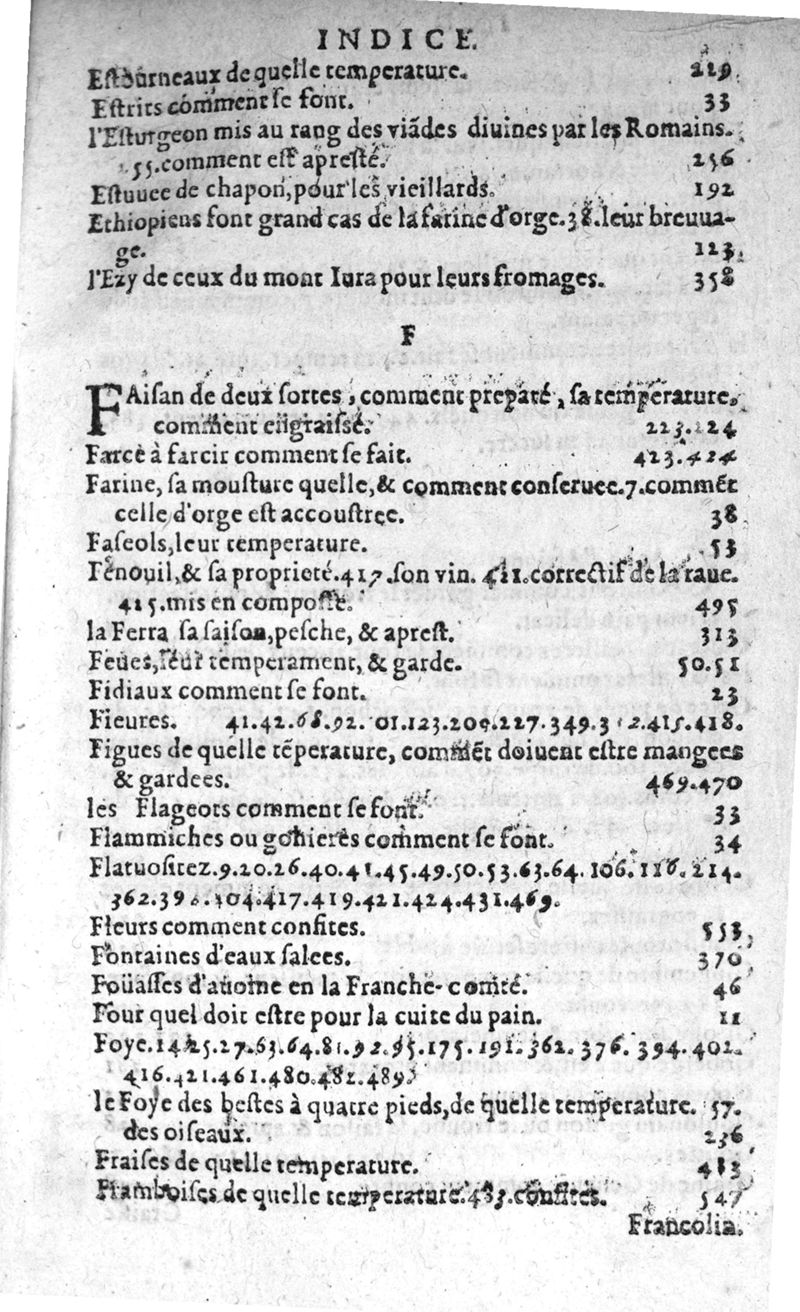 INDICE.
Estourneaux de quelle temperature. 219
Estrits comment se font. 33
l'Esturgeon mis au rang des viãdes diuines par les Romains.
55.comment est apresté. 256
Estuuee de chapon,pour les vieillards. 192
Ethiopiens font grand cas de la farine d'orge.38.leur breuua-
ge. 123.
l'Ezy de ceux du mont Iura pour leurs fromages. 358
F
FAisan de deux sortes, comment preparé, sa temperature.
comment engraissé. 223.224
Farce à farcir comment se fait. 423.424
Farine, sa mousture quelle,& comment conseruee.7.commẽt
celle d'orge est accoustree. 38
Faseols,leur temperature. 53
Fenouil,& sa proprieté.417.son vin. 411.correctif de la raue.
415.mis en composte. 495
la Ferra sa saison,pesche, & aprest. 313
Feues,leur temperament, & garde. 50.51
Fidiaux comment se font. 23
Fieures. 41.42.68.92. 01.123.209.227.349.3 2.415.418.
Figues de quelle tẽperature, commẽt doiuent estre mangees
& gardees. 469.470
les Flageots comment se font. 33
Flammiches ou gohieres comment se font. 34
Flatuositez.9.20.26.40.41.45.49.50.53.63.64. 106. 116. 214.
362.39 .404.417.419.421.424.431.469.
Fleurs comment confites. 553
Fontaines d'eaux salees. 370
Foüasses d'auoine en la Franche-comté. 46
Four quel doit estre pour la cuite du pain. 11
Foye. 27.63.64.81.92.95.175.191.362. 376. 394.402.
416.421.461.480.482.489
le Foye des bestes à quatre pieds,de quelle temperature. 57.
des oiseaux. 236
Fraises de quelle temperature. 483
Framboises de quelle temperature.483.confites. 547
Francolin.